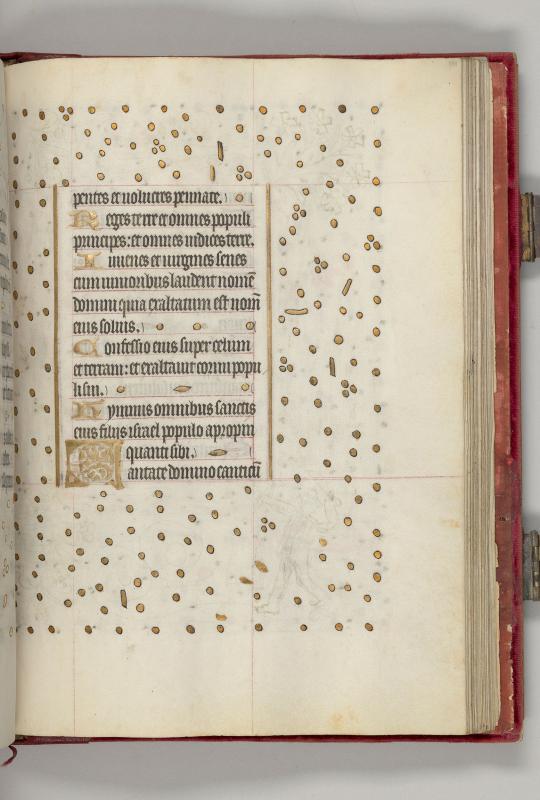 pentes et uolucres pennate.
Reges terre et omnes populi
principes: et omnes iudices terre.
Iuuenes et uirgines senes
cum iunioribus laudent nomē
domini quia exaltatum est nom̄
eius solius.
Confessio eius super celum
et terram: et exaltauit cornu popu
li sui.
Hympnus omnibus sanctis
eius filiis israel populo apropin
quanti sibi.
Cantate domino canticū